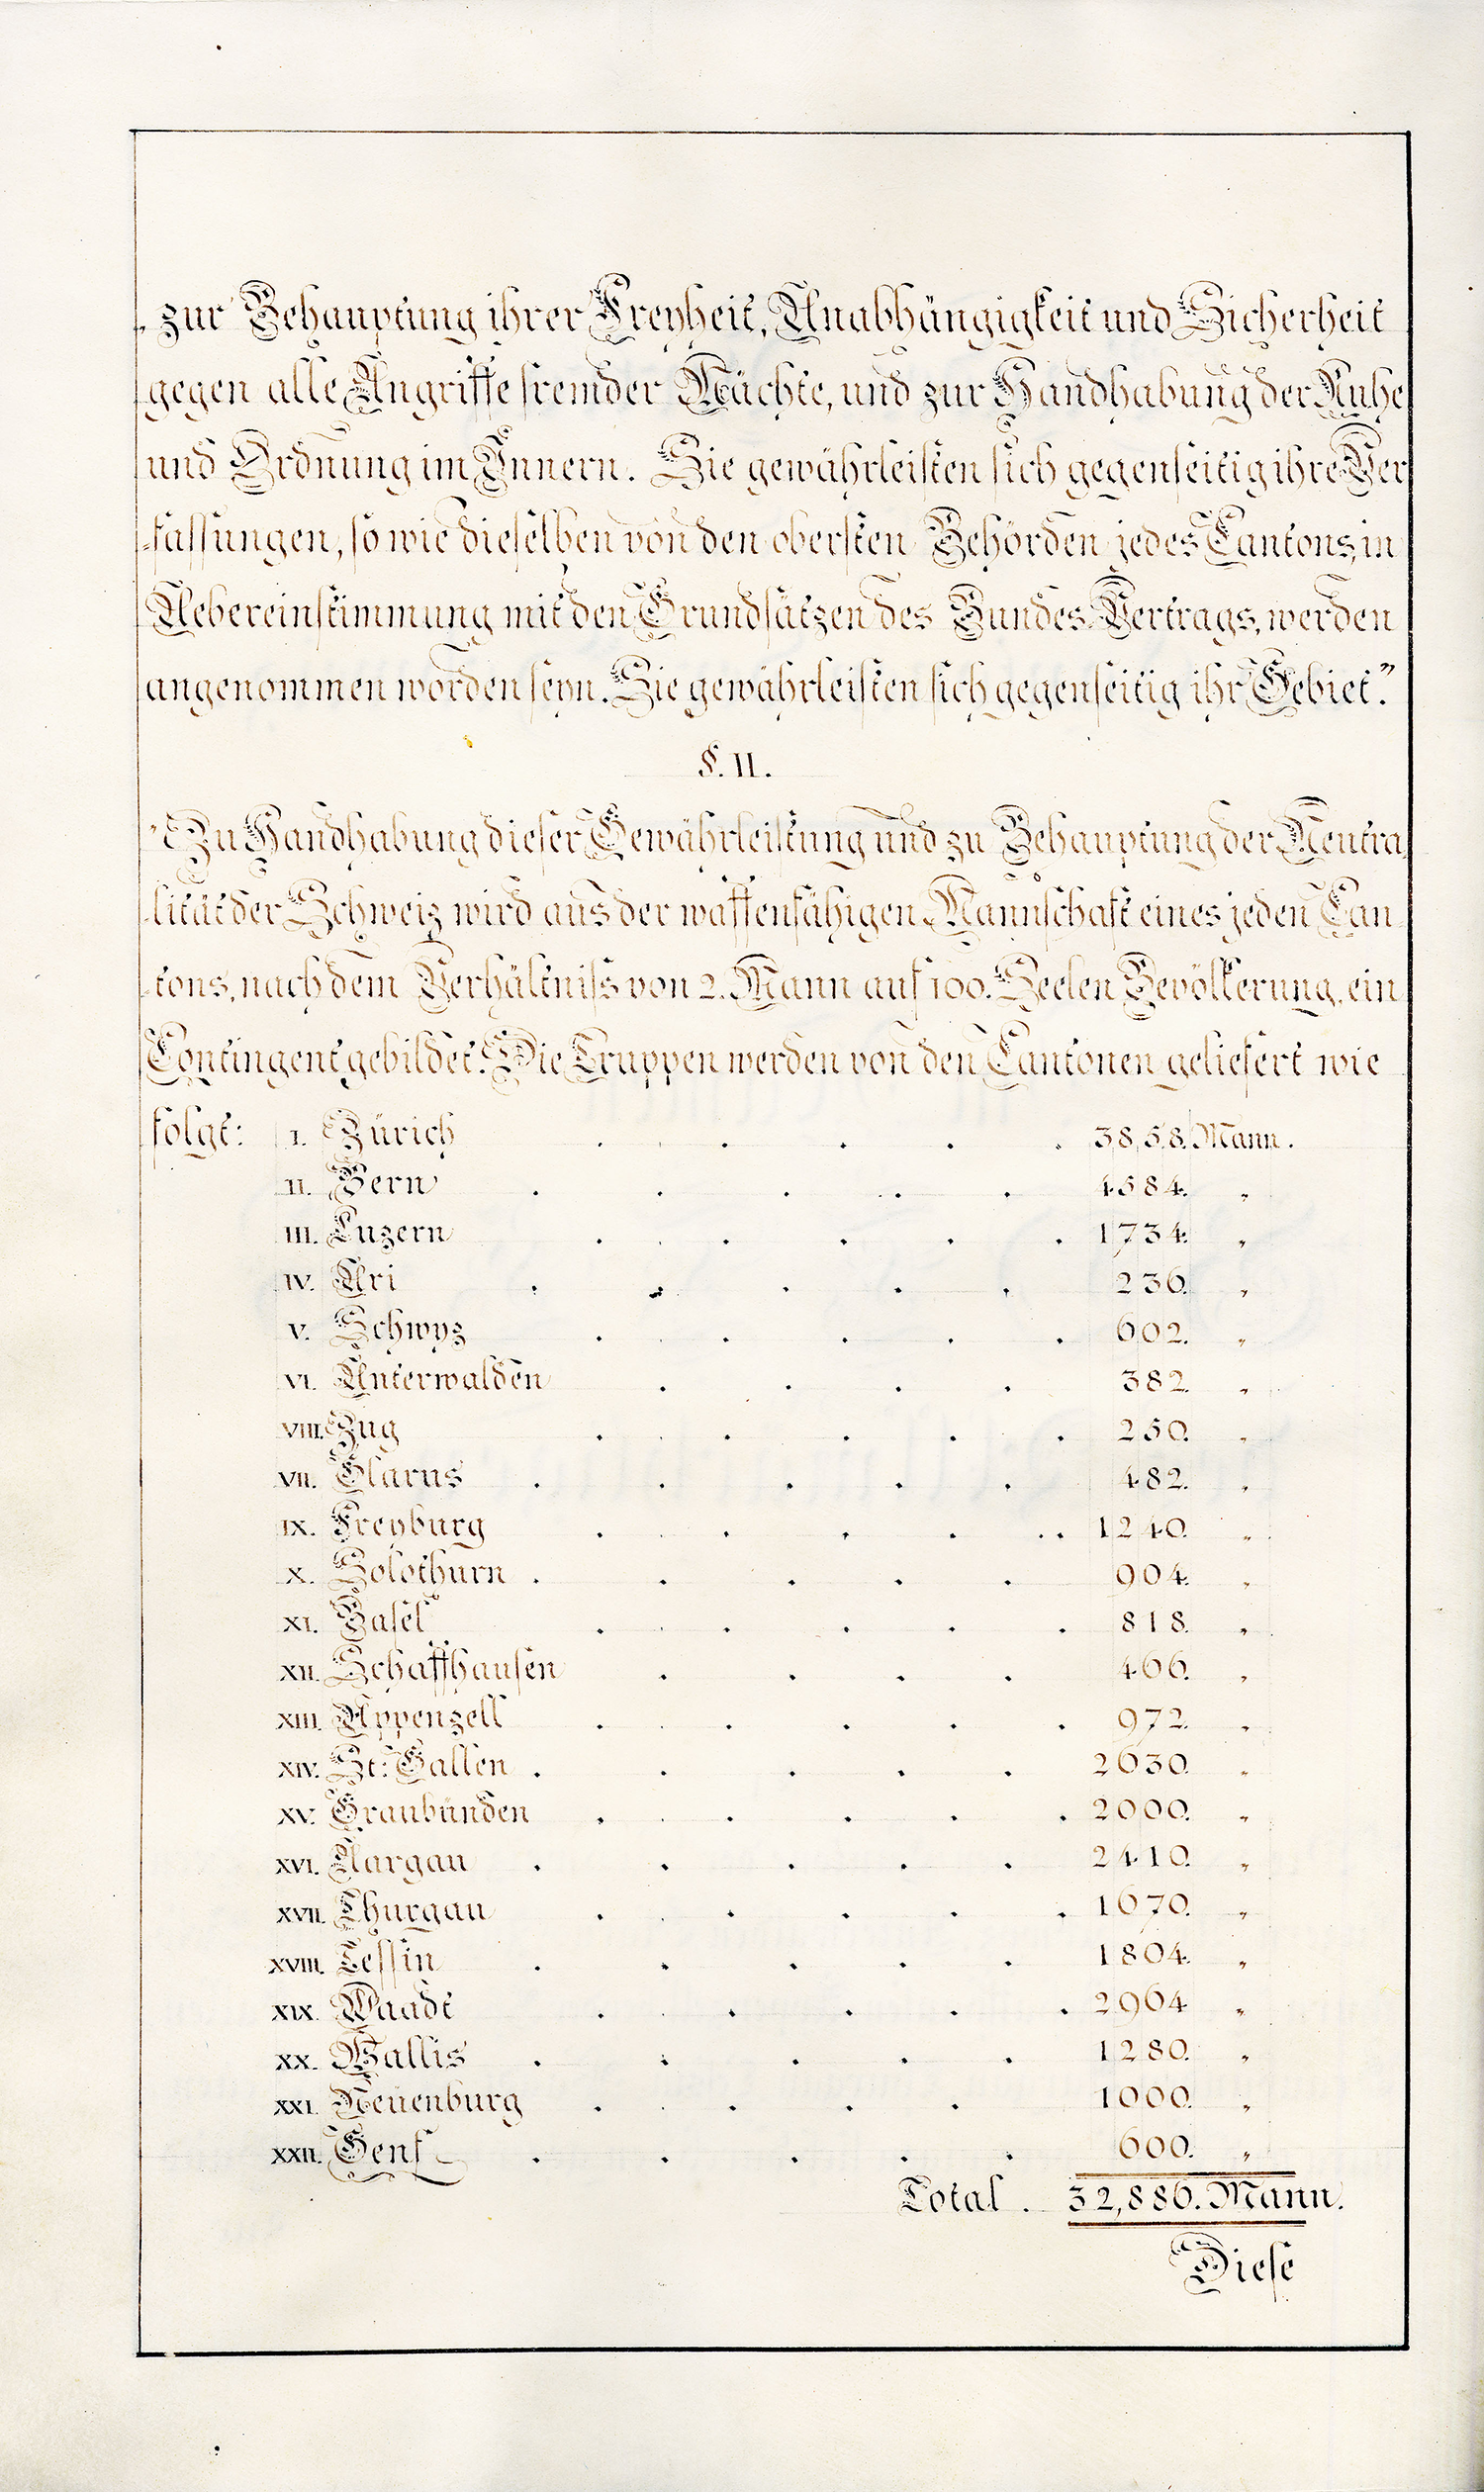 „ zur Behauptung ihrer Freyheit, Unabhängigkeit und Sicherheit
gegen alle Angriffe fremder Mächte, und zur Handhabung der Ruhe
und Ordnung im Innern. Sie gewährleisten sich gegenseitig ihre Ver
-fassungen, so wie dieselben von den obersten Behörden jedes Cantons, in
Uebereinstimmung mit den Grundsätzen des Bundes-Vertrags, werden
angenommen worden seyn. Sie gewährleisten sich gegenseitig ihr Gebiet."
§. II.
"Zu Handhabung dieser Gewährleistung und zu Behauptung der Neutra
-lität der Schweiz wird aus der waffenfähigen Mannschaft eines jeden Can
-tons, nach dem Verhältniss von 2. Mann auf 100. Seelen Bevölkerung, ein
Contingent gebildet. Die Truppen werden von den Cantonen geliefert wie
folgt: I. Zürich . . . . . 3858. Mann.
II. Bern . . . . . 4584. „
III. Luzern . . . . . 1734. „
IV. Uri . . . . . 236. „
V. Schwyz . . . . . 602. „
VI. Unterwalden . . . . 382. „
VIII. Zug . . . . . 250. „
VII. Glarus . . . . . 482. „
IX. Freyburg . . . . . . 1240. „
X. Solothurn . . . . . 904. „
XI. Basel . . . . . 818. „
XII. Schaffhausen . . . . 466. „
XIII. Appenzell . . . . . 972. „
XIV. St: Gallen . . . . . 2630. „
XV. Graubünden . . . . . 2000. „
XVI. Aargau . . . . . 2410. „
XVII. Thurgau . . . . . 1670. „
XVIII. Tessin . . . . . 1804. „
XIX. Waadt . . . . . 2964 „
XX. Wallis . . . . . 1280. „
XXI. Neuenburg . . . . 1000. „
XXII. Genf . . . . . 600. „
Total . 32,886. Mann.
Diese